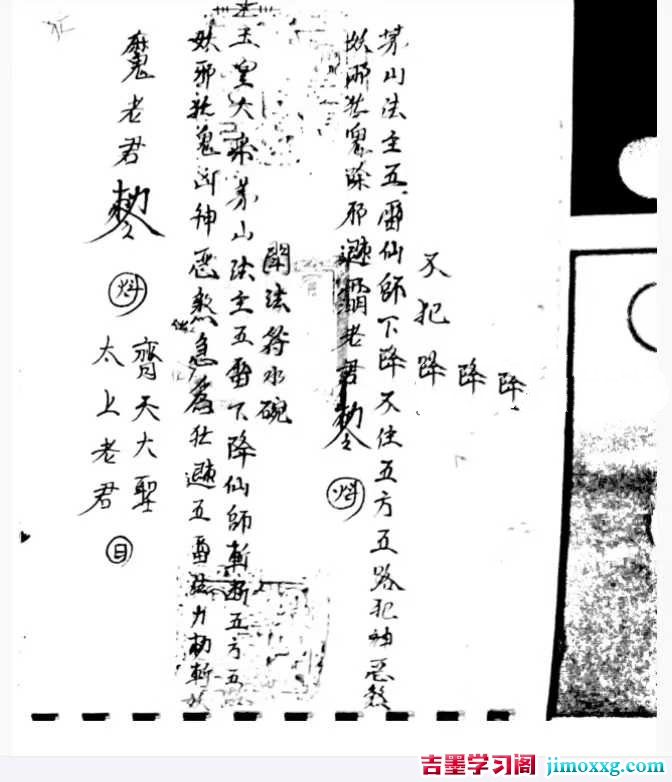 又犯降降降
茅山法主五雷仙師下降又住五方五路犯神惡煞
妖邪鬼除邪老君勅令
開法符水碗
玉皇大帝茅山法主五雷下降仙師斬断五方五
妖邪鬼凶神惡煞急五雷法力勅斬妖
魔老君勅令
齊天大聖
太上老君
吉墨学习阁 jimoxxg.com